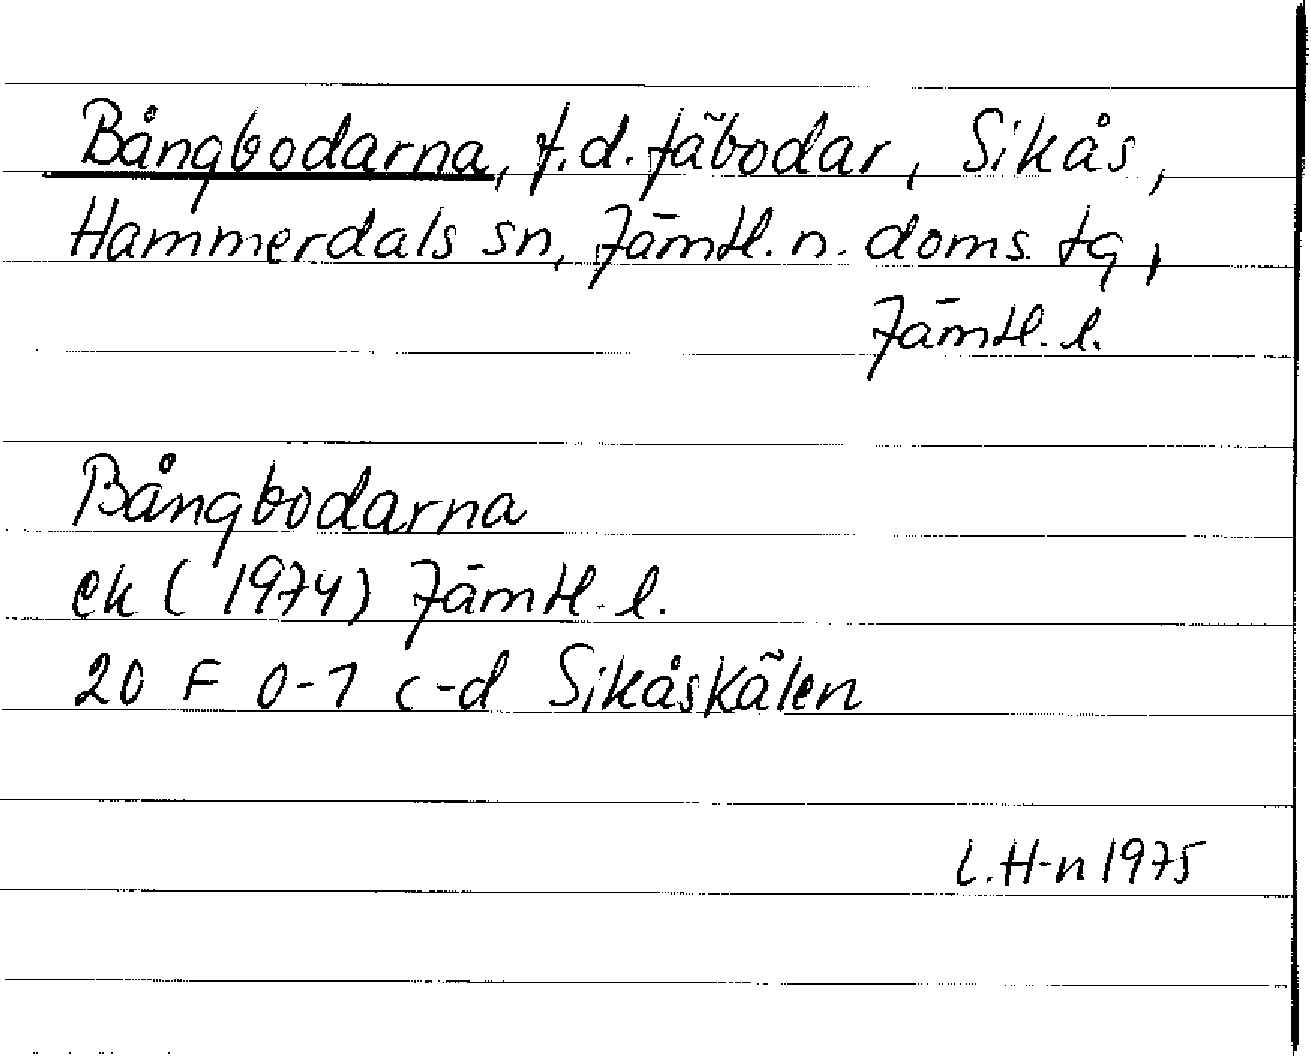 Bångbodarna, f.d. fäbodar, Sikås,
Hammerdals sn, Jämtl. n. doms. tg,
Jämtl. l.
Bångbodarna
ek (1974) Jämtl. l.
20 F 0-1 c-d Sikåskälen
L. H-n 1975